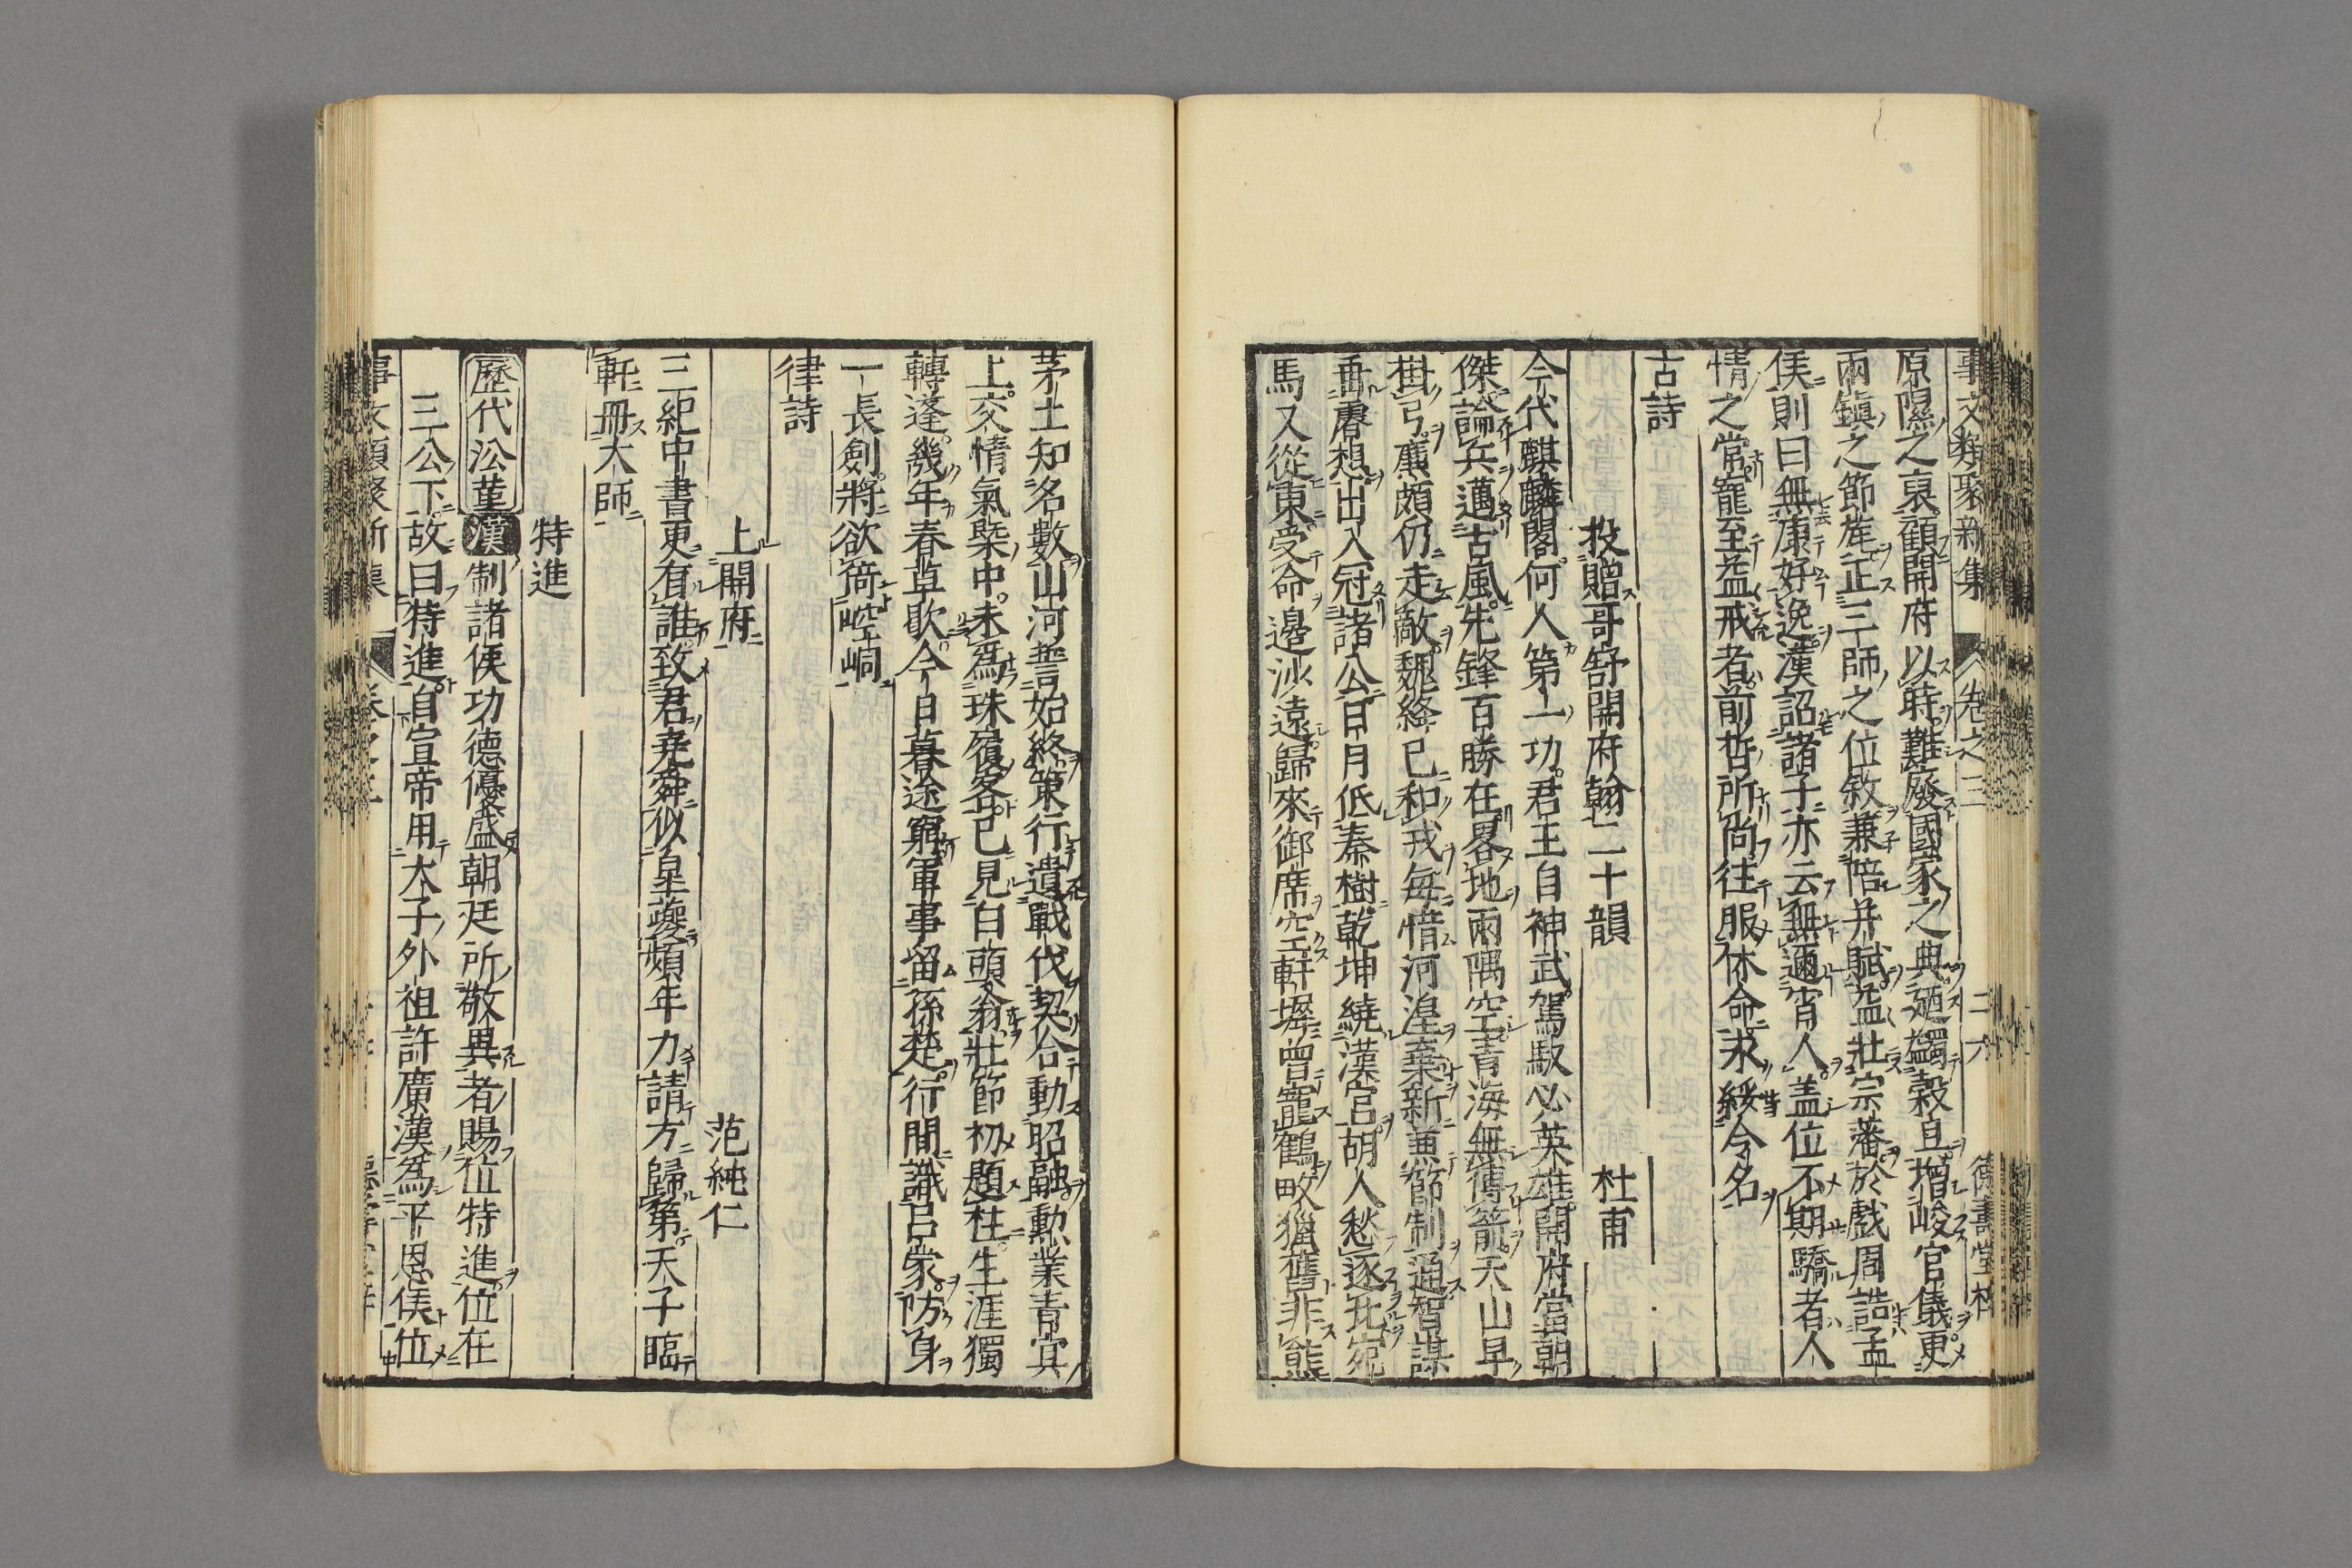 事文類聚新集 卷之三 二十六 德壽堂梓
原隰之裒顧開府以時難廢國家之典廼蠲穀旦增峻官儀更
兩鎮之節旄正三師之位敘兼陪并賦益壯宗藩於戲周誥孟
侯則曰無康好逸漢詔諸子亦云無邇宵人盖位不期驕者人
情之常寵至益戒者前哲所尚往服休命永綏令名
古詩
投贈哥舒開府翰二十韻 杜甫
今代麒麟閣何人第一功君王自神武駕馭必英雄開府當朝
傑論兵邁古風先鋒百勝在畧地兩隅空青海無傳箭天山早
掛弓廉頗仍走敵魏絳已和戎每惜河湟棄新兼節制通智謀
垂睿想出入冠諸公日月低秦樹乾坤繞漢宮胡人愁逐北宛
馬又從東受命邊沙遠歸來御席空軒墀曾寵鶴畋獵舊非熊
茅土知名數山河誓始終策行遺戰伐契合動昭融勲業青冥
上交情氣槩中未爲珠履客已見白頭翁壯節初題柱生涯獨
轉蓬幾年春草歇今日暮途窮軍事留孫楚行間識呂蒙防身
一長劍將欲倚崆峒
律詩
上開府 范純仁
三紀中書更有誰致君堯舜似皐夔頻年力請方歸第天子臨
軒冊太師
特進
歷代沿革漢制諸侯功德優盛朝廷所敬異者賜位特進位在
三公下故曰特進自宣帝用太子外祖許廣漢爲平恩侯位